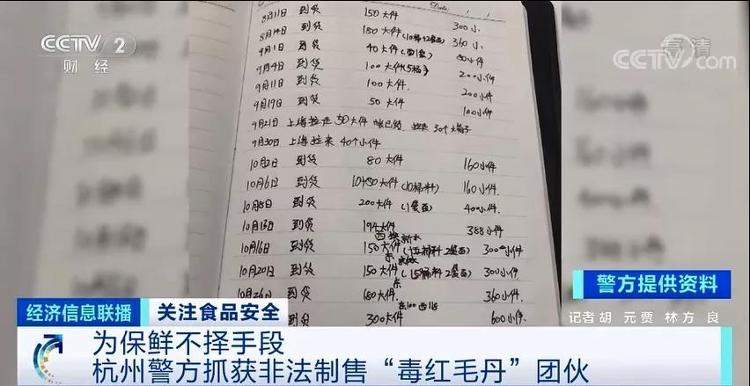 CCTV 2
财经
高清
CCTV.com
Date
8月11日 到货 150大件 300小
8月14日 到货 180大件 360小
9月1日 到货 40大件 80小件
9月4日 到货 100大件 200小件
9月11日 到货 100大件 200小件
9月19日 到货 50大件 100小件
9月21日 上海拉走50大件
9月30日 上海拉来40个小件
10月2日 到货 80大件 160小件
10月6日 到货 80大件 160小件
10月8日 到货 200大件 400小件
10月13日 到货 194大件 388小件
10月16日 到货 150大件 300小件
10月20日 到货 150大件 300小件
10月26日 到货 180大件 360小件
到货 300大件 600小件
警方提供资料
经济信息联播 关注食品安全
记者 胡 元 贾 林 方 良
为保鲜不择手段
杭州警方抓获非法制售“毒红毛丹”团伙